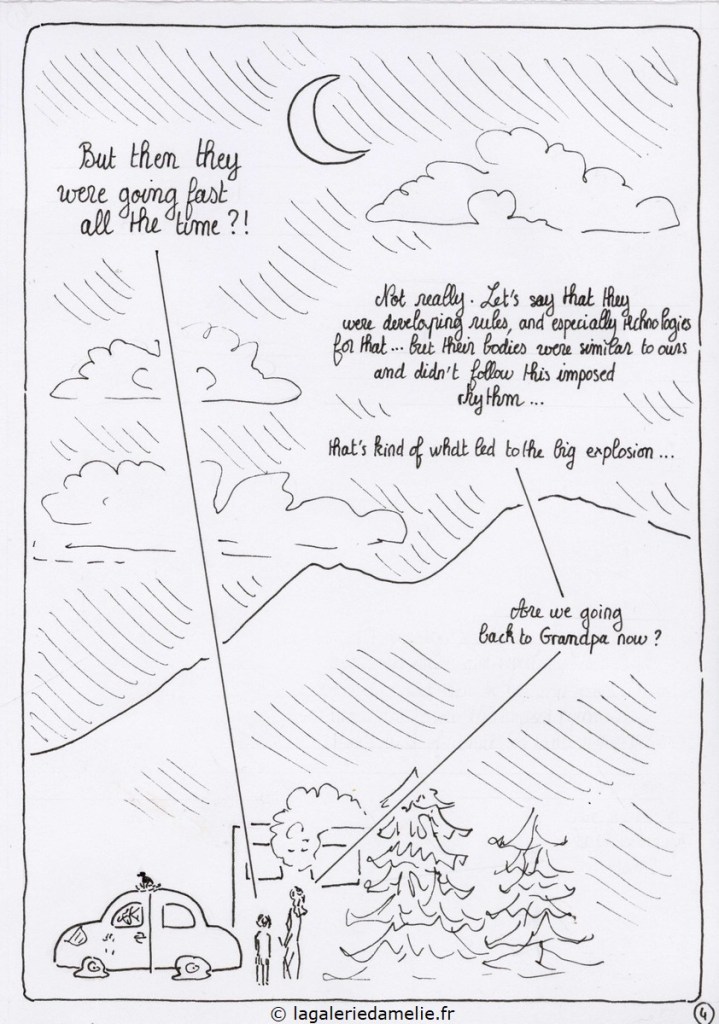 But then they
were going fast
all the time ?!
Not really. Let's say that they
were developing rules, and especially technologies
for that... but their bodies were similar to ours
and didn't follow this imposed
rhythm ...
that's kind of what led to the big explosion ...
Are we going
back to Grandpa now ?
4
© lagaleriedamelie.fr